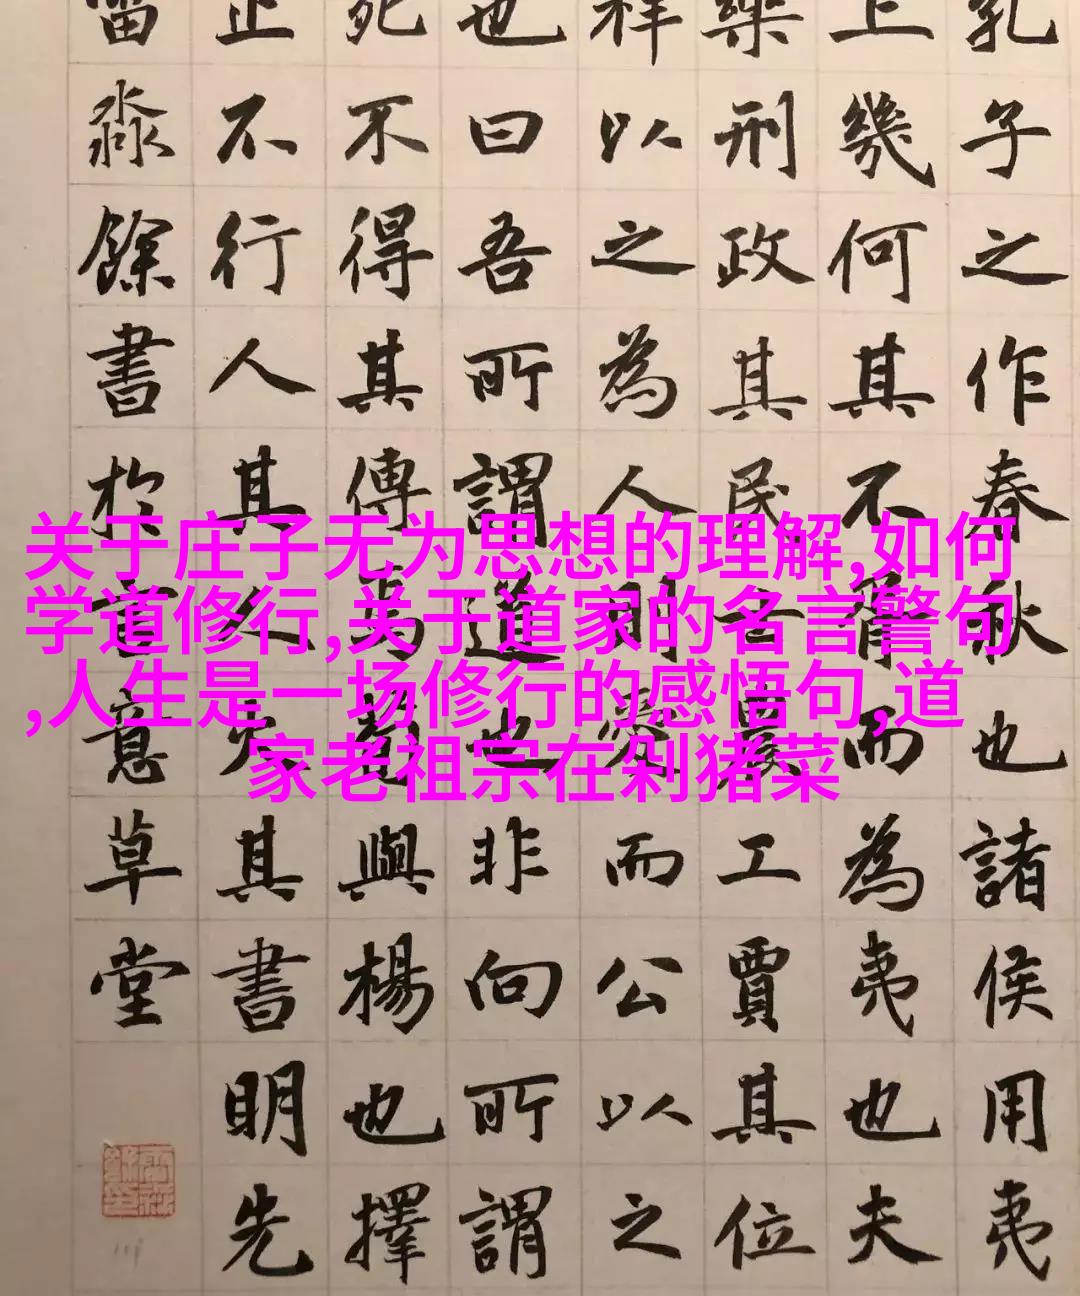 孔子之作春秋也諸侯用夷
上幾何其不胥而為夷也夫
樂刑政其民士農工賈其位
祥以之為人則愛而公以之
也曰吾所謂道也非向所謂
死不得其傳焉荀與楊也擇
止不行人其人火其書明先
雷淼餘書於意草堂
关于庄子无为思想的理解,如何
学道修行,关于道家的名言警句
,人生是一场修行的感悟句,道
家老祖宗在剁猪菜